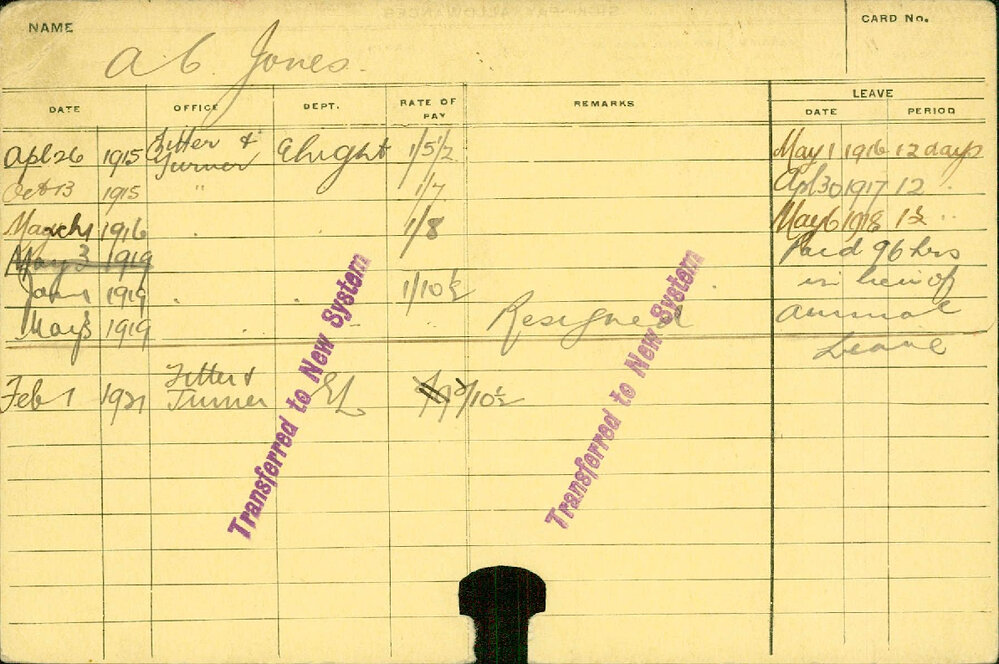 NAME
CARD No.
A C. Jones.
DATE OFFICE DEPT. RATE OF PAY REMARKS LEAVE
DATE PERIOD
Apl 26 1915 Fitter & Turner Elight 1/5½ May 1 1916 12 days
Oct 13 1915 " 1/7 Apl 30 1917 12 "
March 1 1916 " " 1/8 May 6 1918 12 "
May 3 1919 Paid 96 hrs
Jan 1 1919 " " 1/10½ in lieu of
May 3 1919 " " " Resigned annual
Leave
Feb 1 1921 Fitter & Turner EL 2/10½
Transferred to New System
Transferred to New System